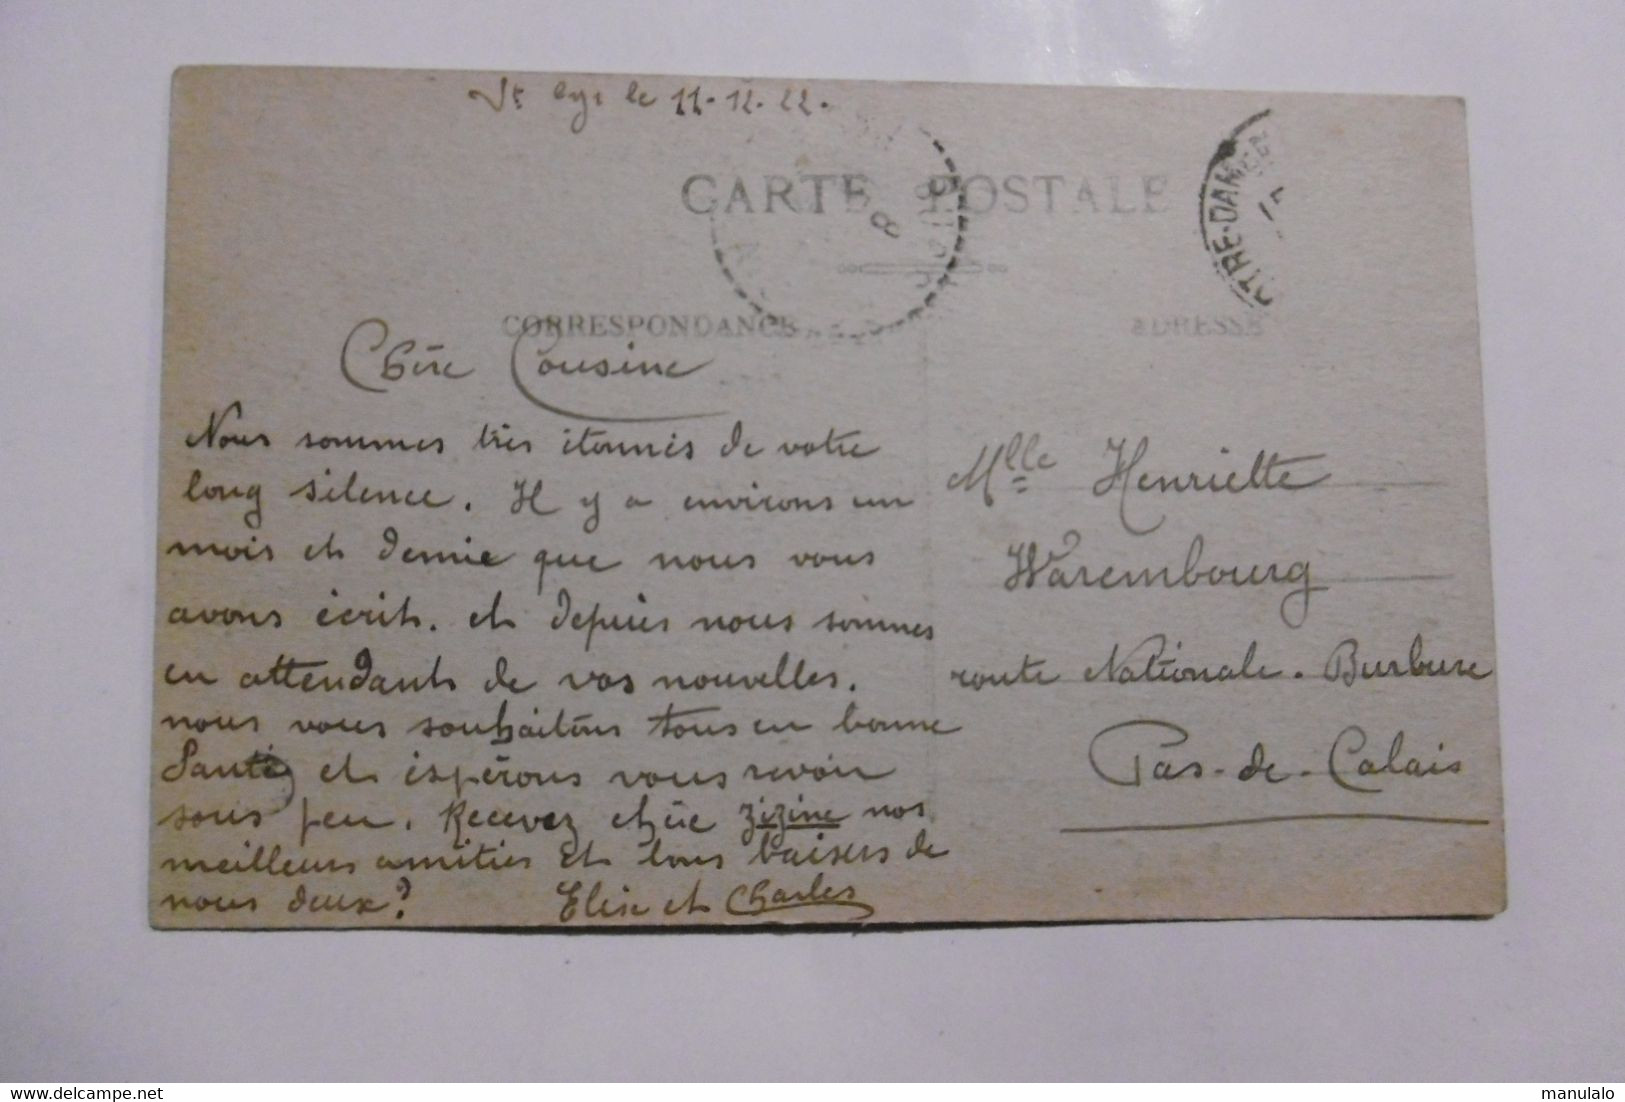 St Cyr le 11-12.22.
CARTE POSTALE
CORRESPONDANCE
ADRESSE
TRE-DAME
8
Chère Cousine
Nous sommes très étonnés de votre
long silence. Il y a environs un
mois et demie que nous vous
avons écrit. et depuis nous sommes
en attendants de vos nouvelles.
nous vous souhaitons tous en bonne
Santé et espérons vous revoir
sous peu. Recevez chère zizine nos
meilleurs amitiés et bons baisers de
nous deux?
Elise et Charles
Mlle Henriette
Warembourg
route Nationale. Burbure
Pas-de-Calais
www.delcampe.net
manulalo